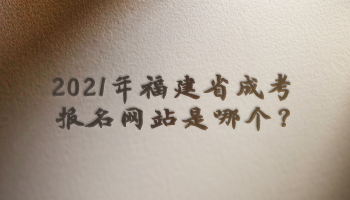 2021年福建省成考
报名网站是哪个？